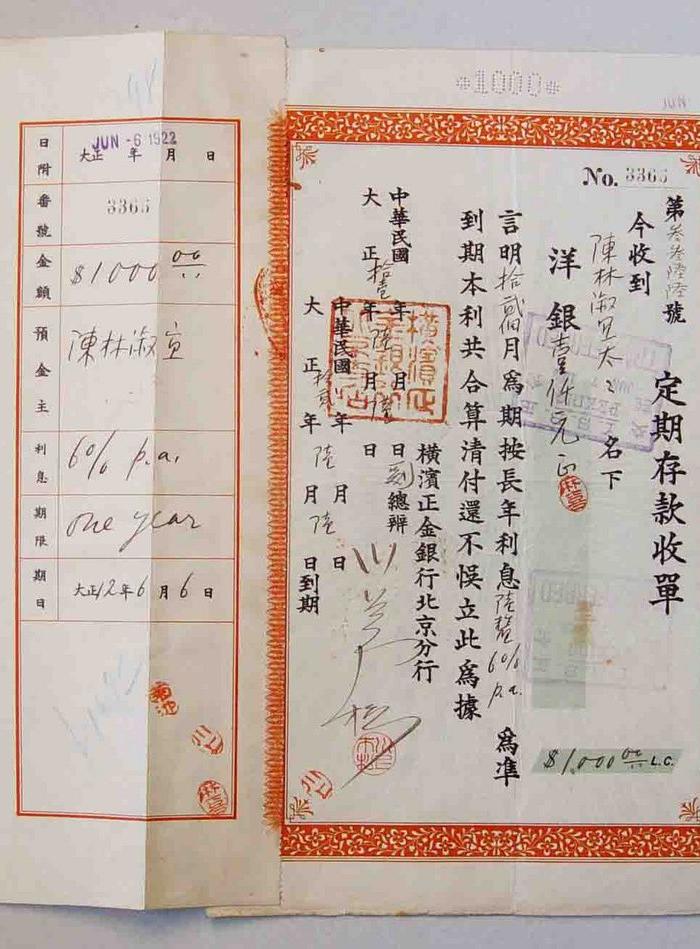 *1000*
JUN
No. 3366
第叁叁陸陸號
定期存款收單
今收到
陳林淑宣太太名下
洋銀壹仟元正
$1,000.00 L.C.
言明拾貳個月為期按長年利息陸釐6% p.a.為準
到期本利共合算清付還不悞立此為據
橫濱正金銀行北京分行
副總辦
中華民國
大正拾壹年陸月陸日
年月日
中華民國
大正拾貳年陸月陸日到期
年月日
日附
JUN -6 1922
大正 年 月 日
番號
3366
金額
$1000.00
預金主
陳林淑宣
利息
6% p.a.
期限
One year
期日
大正12年6月6日